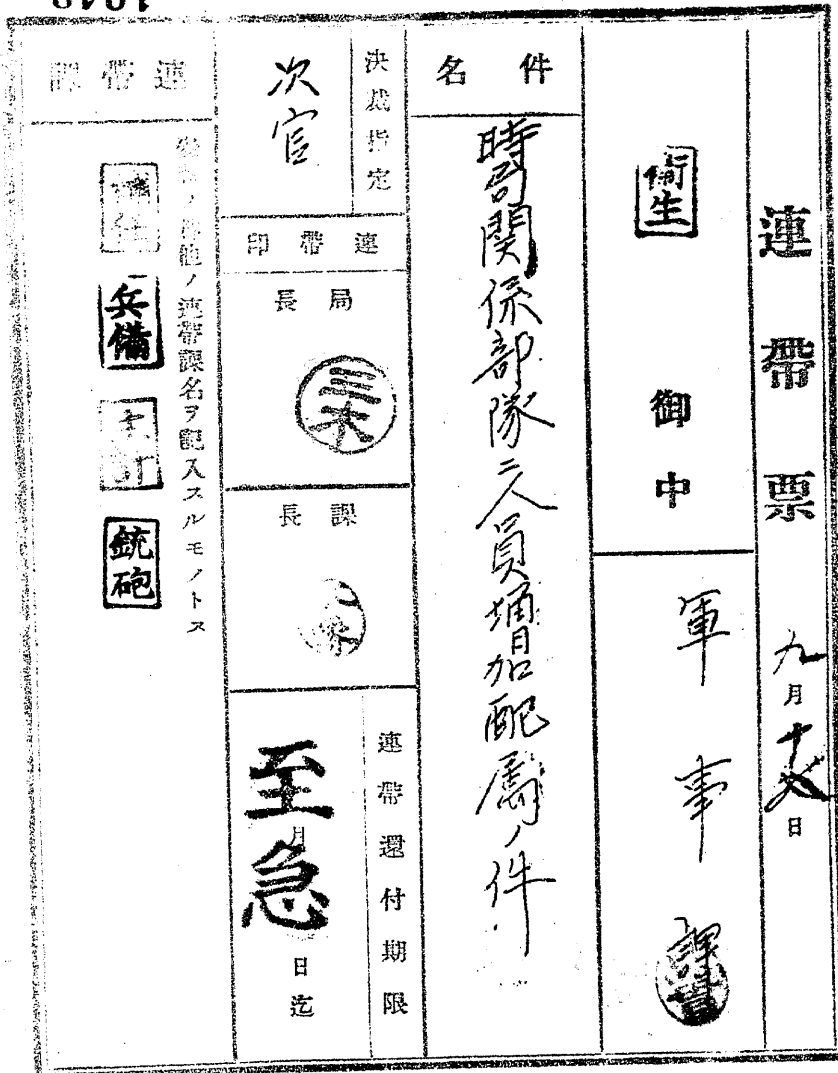 連帶票 九月十六日
衛生 御中
軍事課
件名
時局関係部隊ニ人員増加配属ノ件
決裁指定
次官
連帶印
局長
三木
課長
連帶還付期限
至急
月 日迄
連帶課
ノ連帶課名ヲ記入スルモノトス
兵備
銃砲